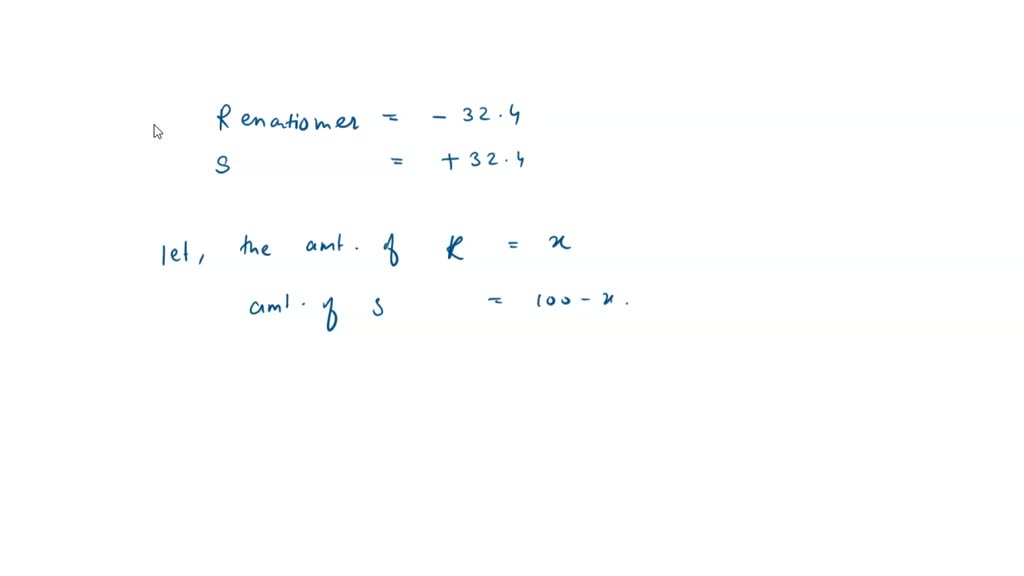 R enatiomer = - 32.4
S = + 32.4
let, the amt. of R = x
amt. of S = 100 - x.